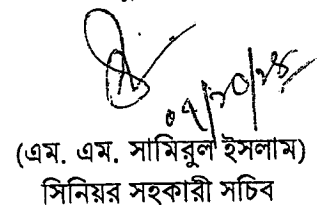 ০৭/১০/২৪
(এম. এম. সামিরুল ইসলাম)
সিনিয়র সহকারী সচিব